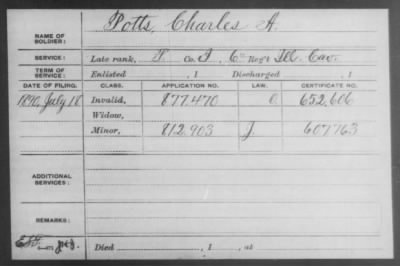 NAME OF SOLDIER: Potts, Charles A.
SERVICE: Late rank, P. Co. I, 6" Reg't Ill. Cav.
TERM OF SERVICE: Enlisted , 1 Discharged , 1
DATE OF FILING. CLASS. APPLICATION NO. LAW. CERTIFICATE NO.
1890, July 18 Invalid, 877.470 O. 652,606
Widow,
Minor, 812,903 J. 607763
ADDITIONAL SERVICES:
REMARKS:
Died , 1 , at